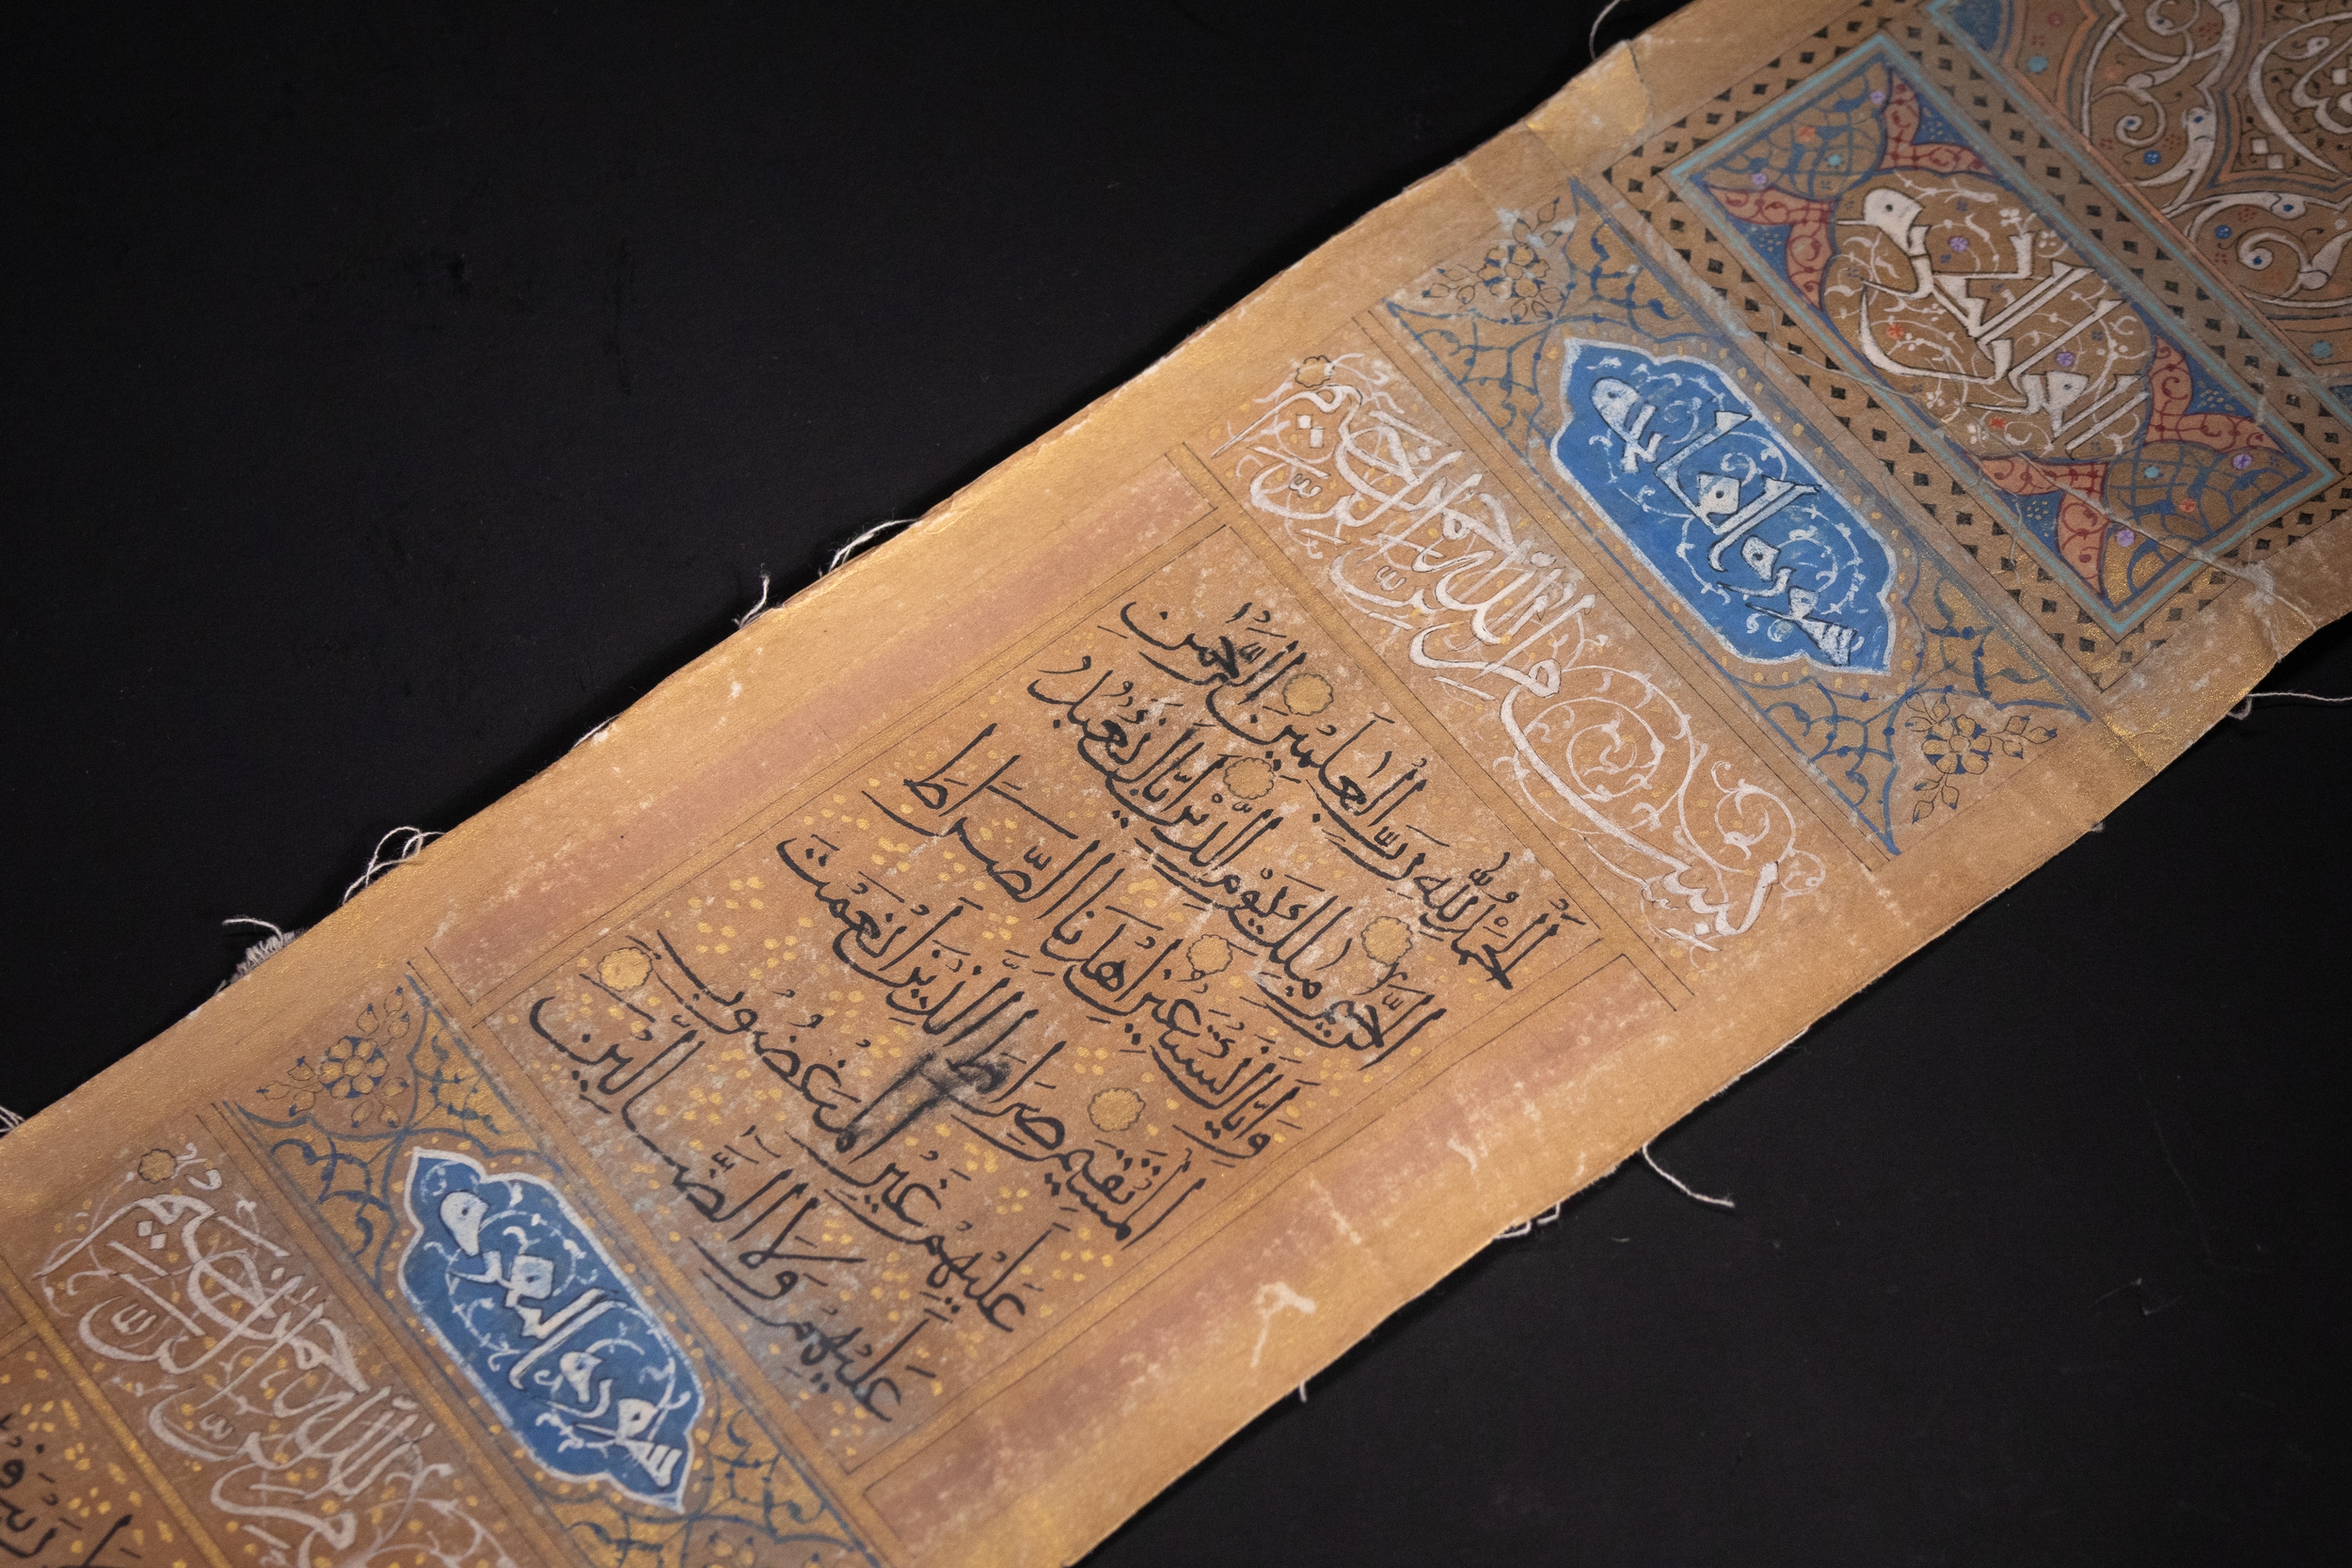 سوره الفاتحه
بِسْمِ اللَّهِ الرَّحْمٰنِ الرَّحِيمِ
اَلْحَمْدُ لِلَّهِ رَبِّ الْعٰلَمِينَ الرَّحْمٰنِ
الرَّحِيمِ مٰلِكِ يَوْمِ الدِّينِ اِيَّاكَ نَعْبُدُ
وَاِيَّاكَ نَسْتَعِينُ اِهْدِنَا الصِّرَاطَ
الْمُسْتَقِيمَ صِرَاطَ الَّذِينَ اَنْعَمْتَ
عَلَيْهِمْ غَيْرِ الْمَغْضُوبِ
عَلَيْهِمْ وَلَا الضَّالِّينَ
سوره البقره
بِسْمِ اللَّهِ الرَّحْمٰنِ الرَّحِيمِ